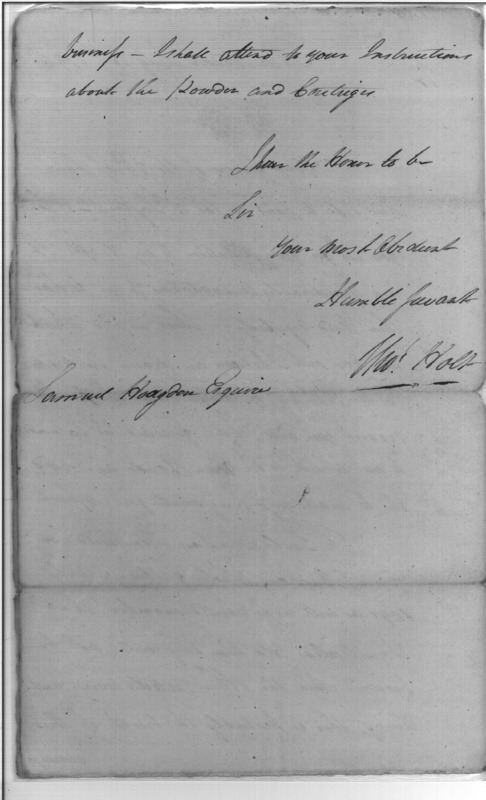 business – I shall attend to your Instructions
about the Powder and Cartriges
I have the Honor to be
Sir
Your most Obedient
Humble Servant
Thos. Holt
Samuel Hodgdon Esquire